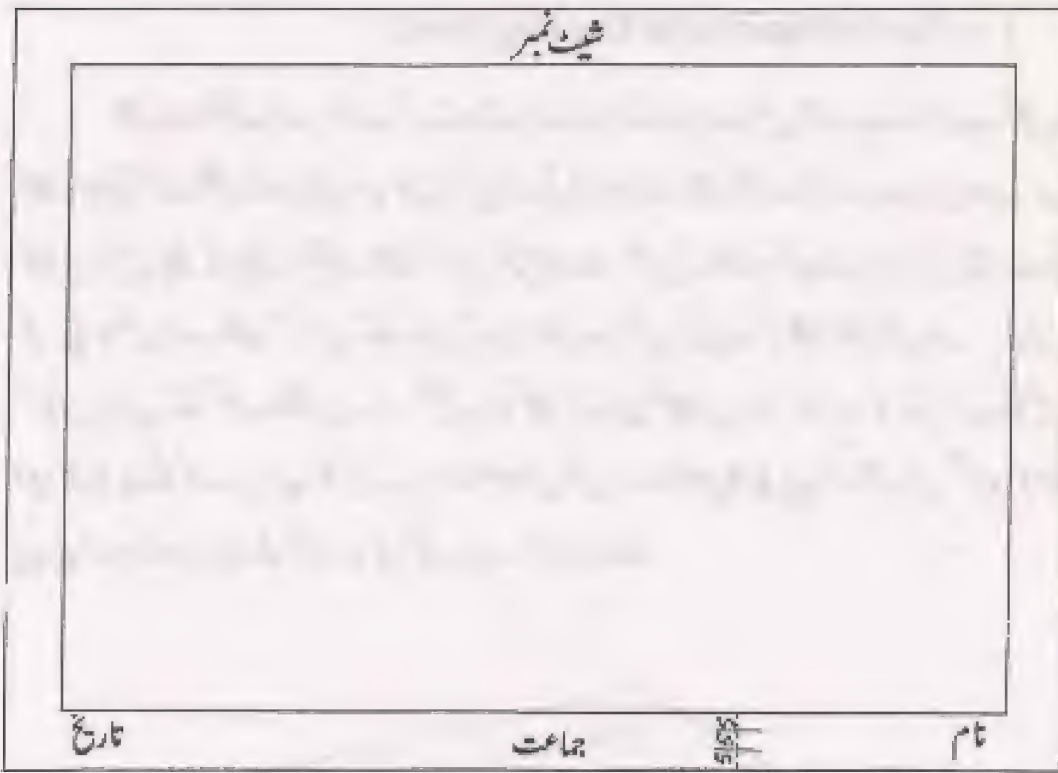 شیٹ نمبر
نام جماعت تاریخ